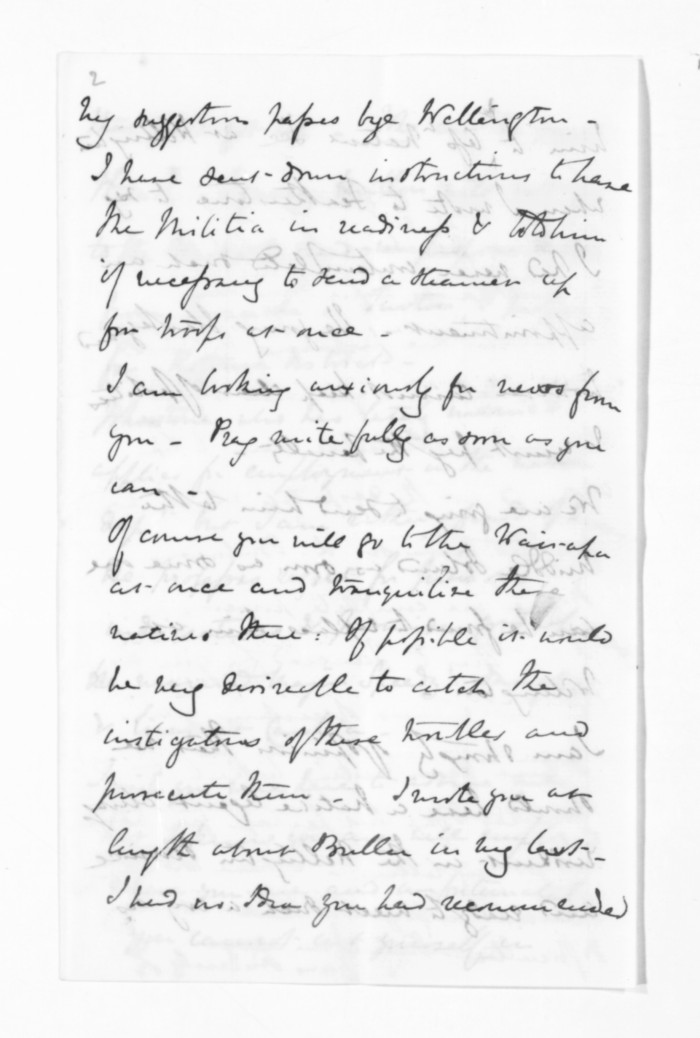 2
my suggestions passes bye Wellington -
I have sent down instructions to have
the Militia in readiness & told him
if necessary to send a steamer up
for troops at once -
I am looking anxiously for news from
you - Pray write fully as soon as you
can -
Of course you will go to the Wairarapa
at once and tranquilise the
natives there: If possible it would
be very desireable to catch the
instigators of these troubles and
prosecute them - I wrote you at
length about Buller in my last -
I had no idea you had recommended